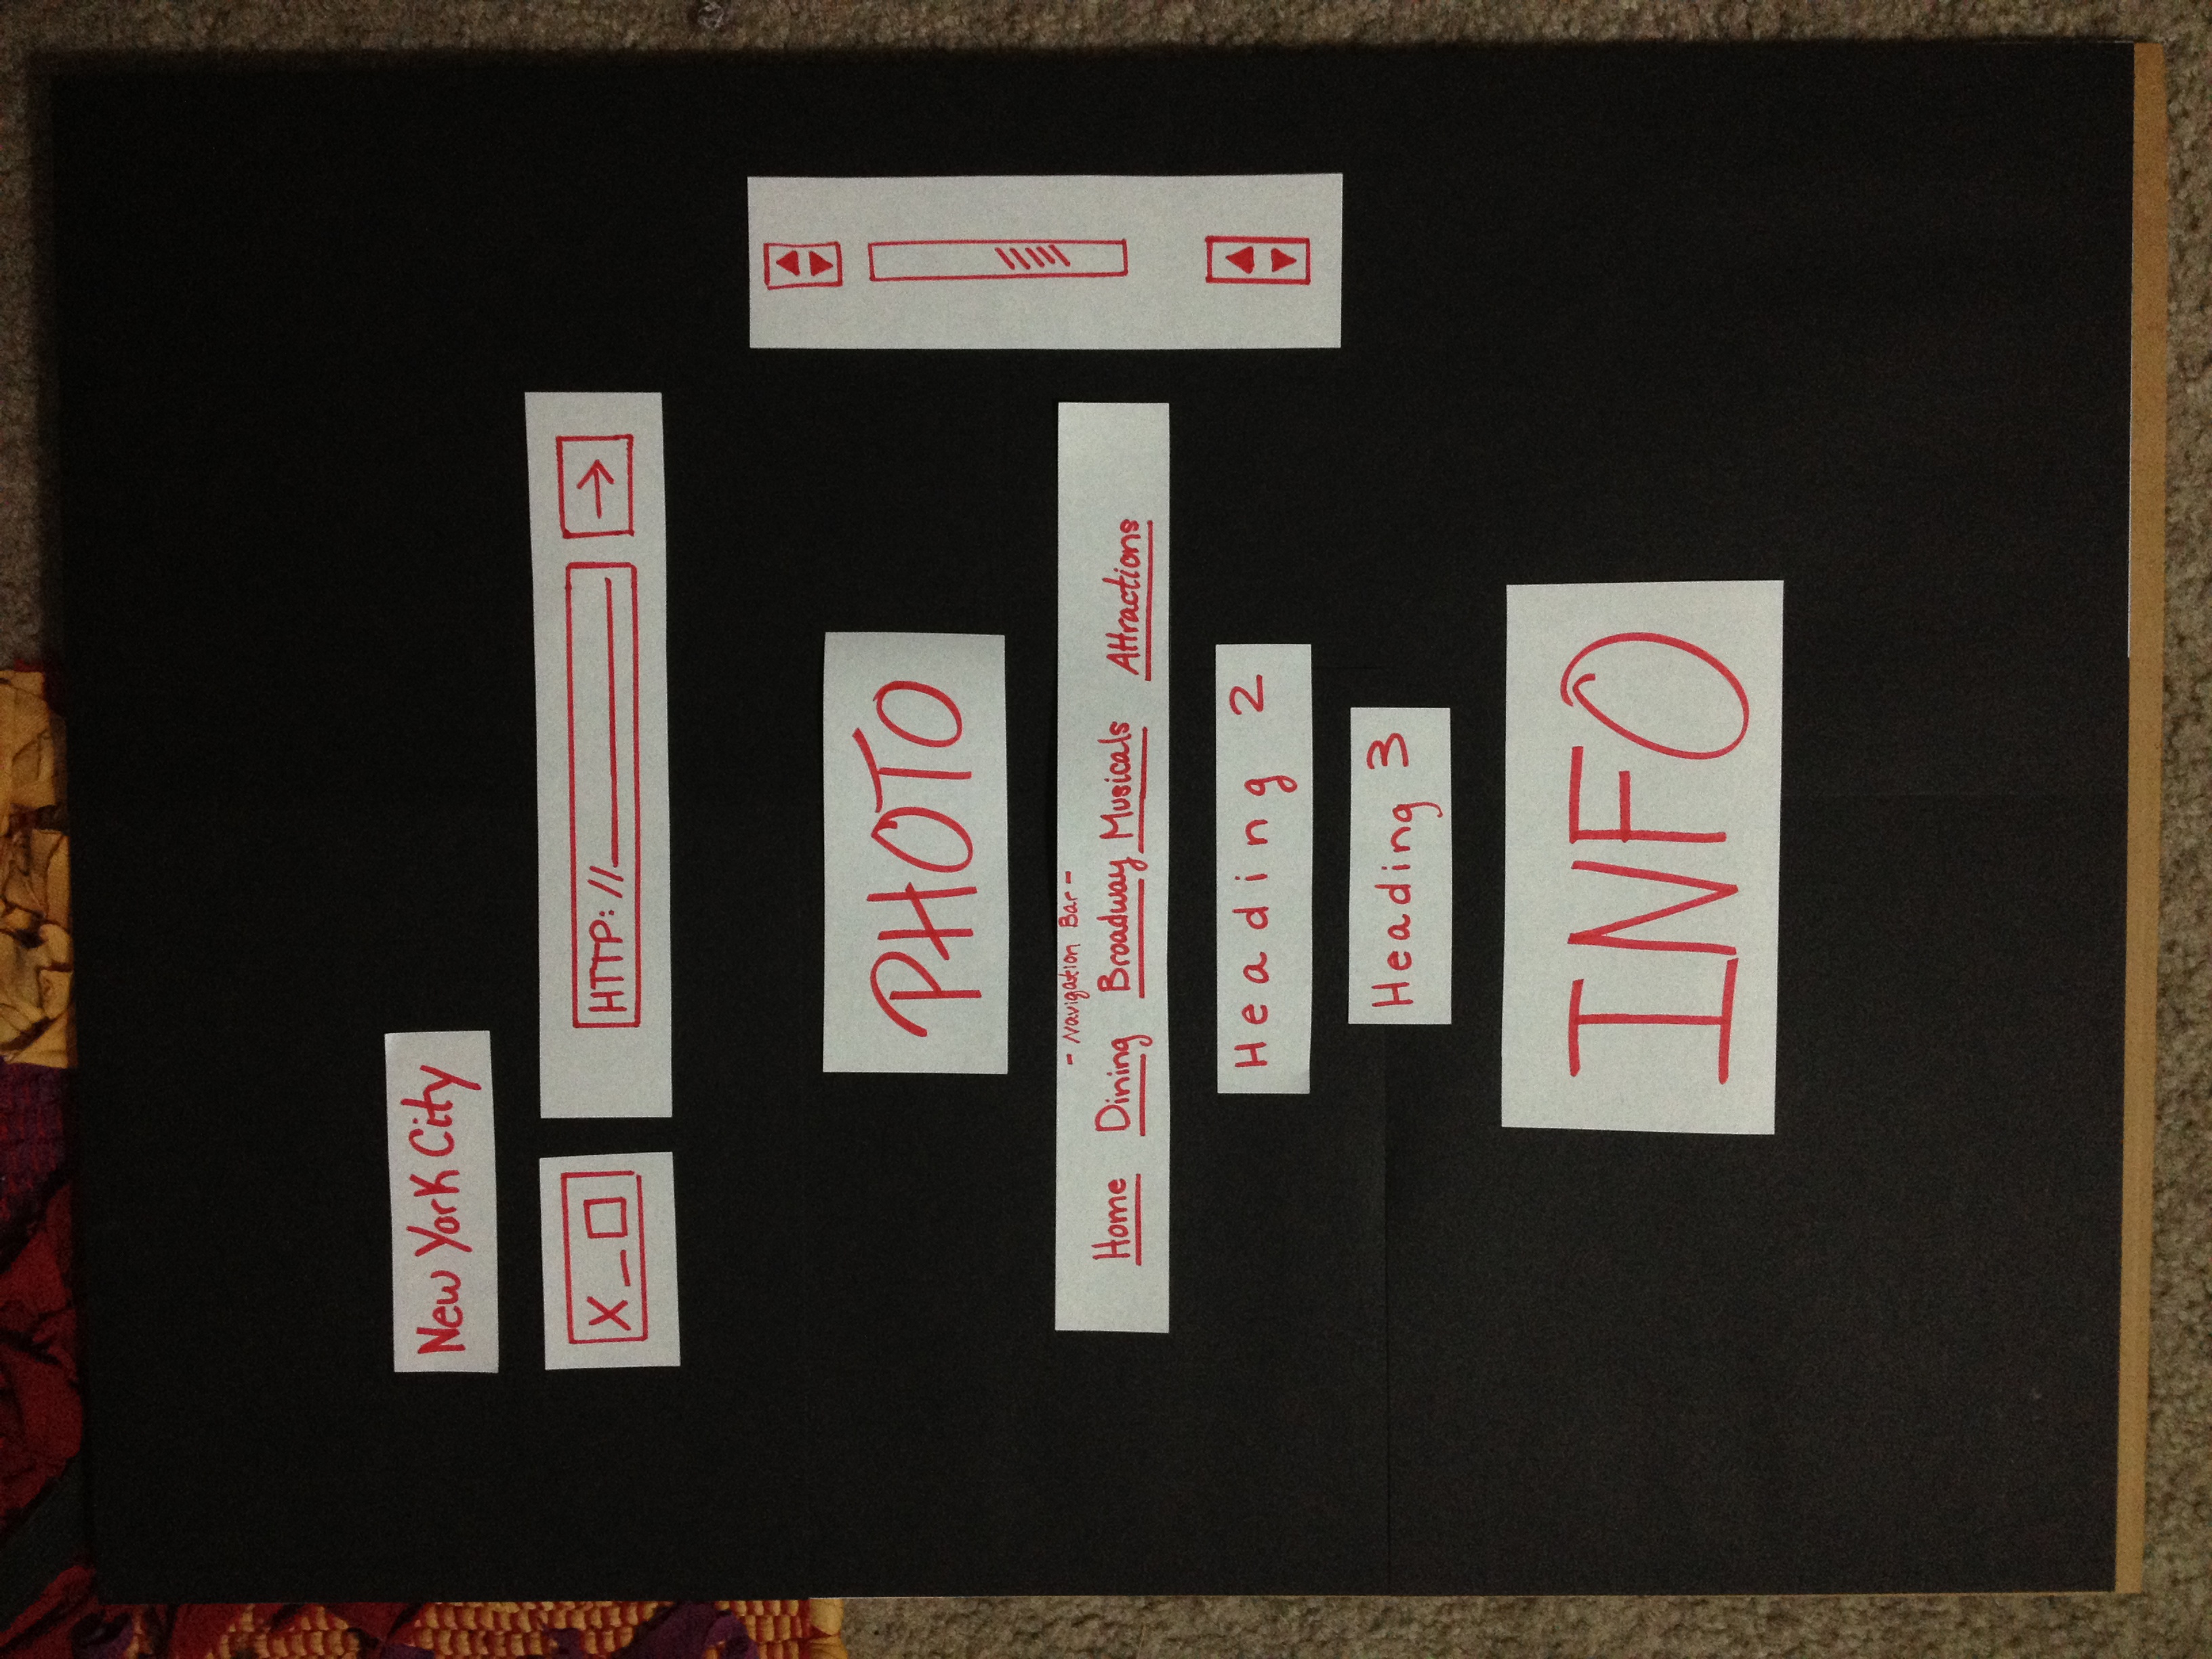 New York City
X _ □
HTTP://__________ →
PHOTO
- Navigation Bar -
Home Dining Broadway Musicals Attractions
Heading 2
Heading 3
INFO